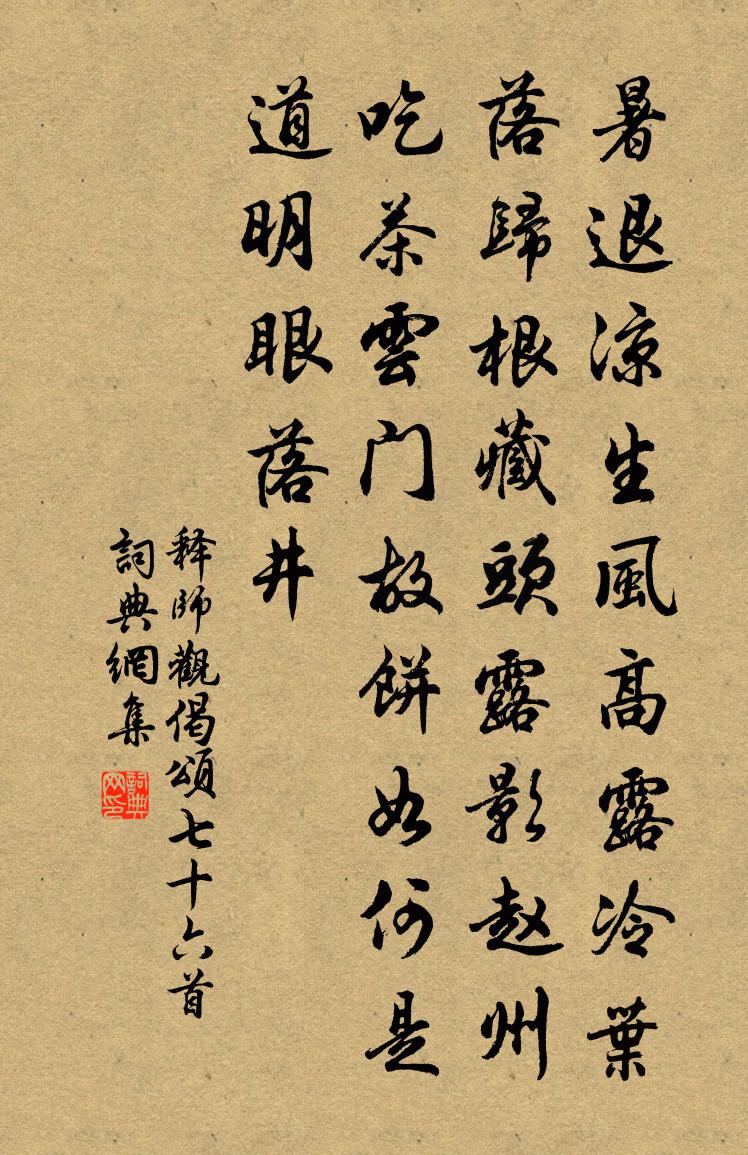 暑退涼生風高露冷葉
落歸根藏頭露影赵州
吃茶雲门放餅如何是
道明眼落井
释師觀偈頌七十六首
詞典網集
詞典网印